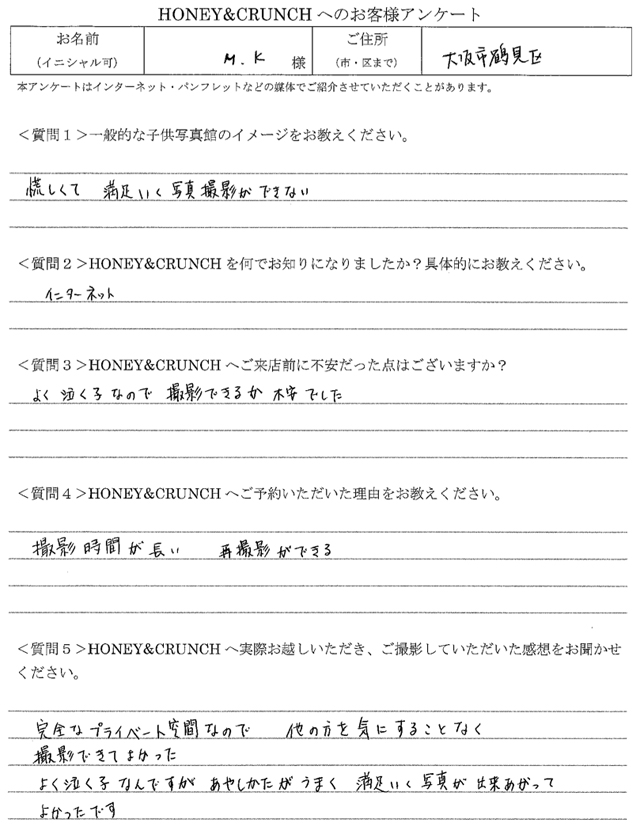 HONEY&CRUNCH へのお客様アンケート
お名前
(イニシャル可)
M.K 様
ご住所
(市・区まで)
大阪市鶴見区
本アンケートはインターネット・パンフレットなどの媒体でご紹介させていただくことがあります。
＜質問１＞一般的な子供写真館のイメージをお教えください。
慌しくて 満足いく写真撮影ができない
＜質問２＞HONEY&CRUNCH を何でお知りになりましたか？具体的にお教えください。
インターネット
＜質問３＞HONEY&CRUNCH へご来店前に不安だった点はございますか？
よく泣く子なので 撮影できるか 不安でした
＜質問４＞HONEY&CRUNCH へご予約いただいた理由をお教えください。
撮影時間が長い 再撮影ができる
＜質問５＞HONEY&CRUNCH へ実際お越しいただき、ご撮影していただいた感想をお聞かせ
ください。
完全なプライベート空間なので 他の方を気にすることなく
撮影できてよかった
よく泣く子なんですが あやしかたがうまく 満足いく写真が出来あがって
よかったです